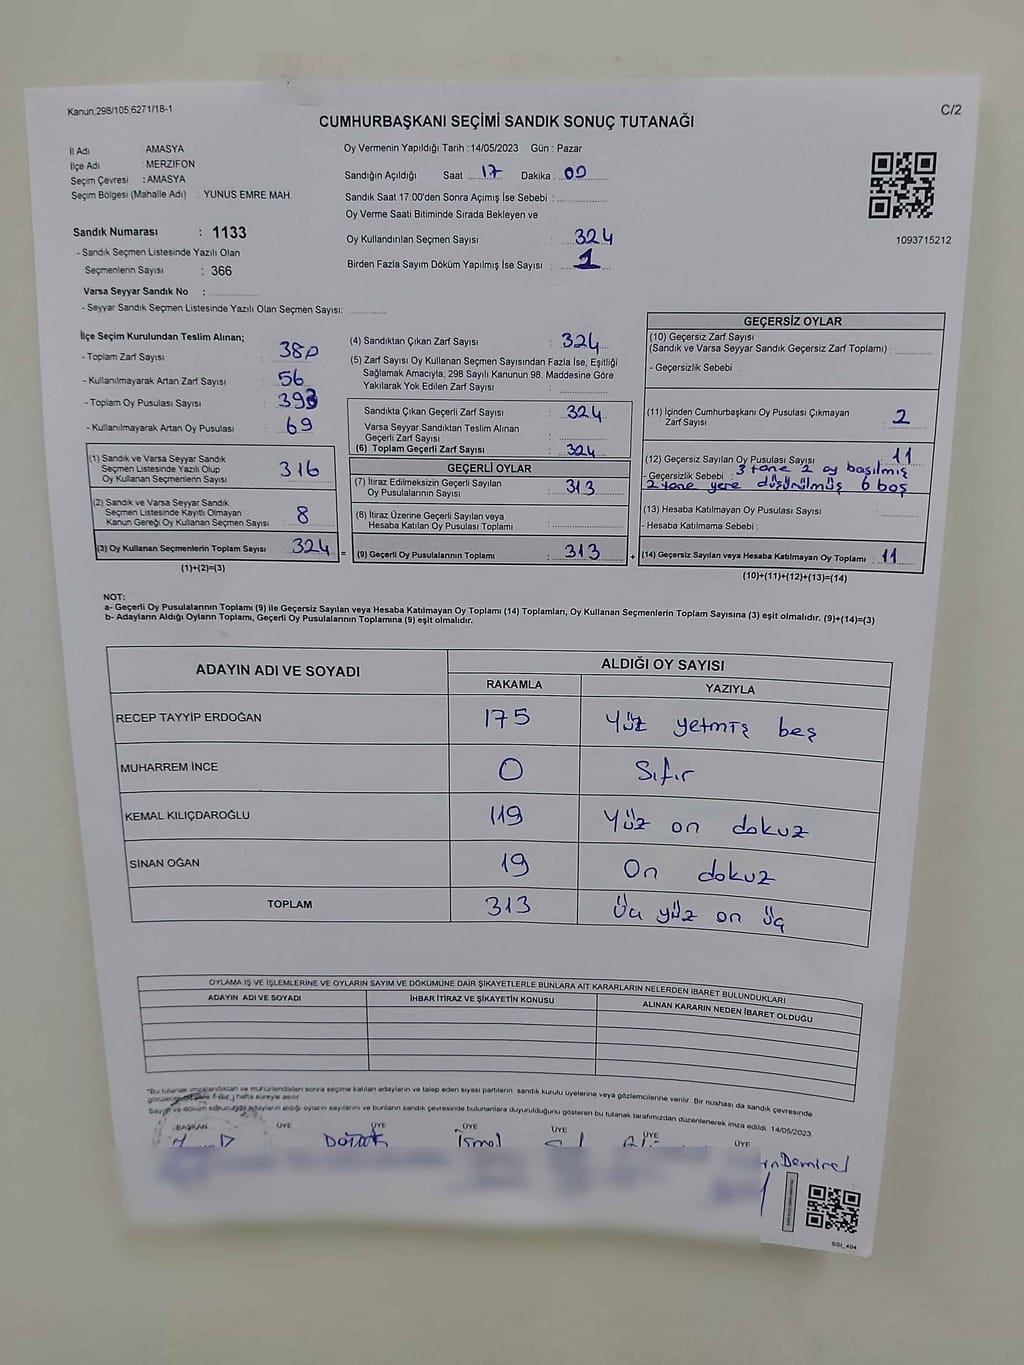 Kanun;298/105;6271/18-1
C/2
CUMHURBAŞKANI SEÇİMİ SANDIK SONUÇ TUTANAĞI
İl Adı : AMASYA
İlçe Adı : MERZİFON
Seçim Çevresi : AMASYA
Seçim Bölgesi (Mahalle Adı) : YUNUS EMRE MAH.
Sandık Numarası : 1133
- Sandık Seçmen Listesinde Yazılı Olan
Seçmenlerin Sayısı : 366
Varsa Seyyar Sandık No :
- Seyyar Sandık Seçmen Listesinde Yazılı Olan Seçmen Sayısı:
Oy Vermenin Yapıldığı Tarih :14/05/2023 Gün : Pazar
Sandığın Açıldığı Saat 17 Dakika : 00
Sandık Saat 17:00'den Sonra Açımış İse Sebebi :
Oy Verme Saati Bitiminde Sırada Bekleyen ve
Oy Kullandırılan Seçmen Sayısı : 324
Birden Fazla Sayım Döküm Yapılmış İse Sayısı : 1
1093715212
İlçe Seçim Kurulundan Teslim Alınan;
- Toplam Zarf Sayısı : 380
- Kullanılmayarak Artan Zarf Sayısı : 56
- Toplam Oy Pusulası Sayısı : 393
- Kullanılmayarak Artan Oy Pusulası : 69
(1) Sandık ve Varsa Seyyar Sandık
Seçmen Listesinde Yazılı Olup
Oy Kullanan Seçmenlerin Sayısı : 316
(2) Sandık ve Varsa Seyyar Sandık
Seçmen Listesinde Kayıtlı Olmayan
Kanun Gereği Oy Kullanan Seçmen Sayısı : 8
(3) Oy Kullanan Seçmenlerin Toplam Sayısı : 324 =
(1)+(2)=(3)
(4) Sandıktan Çıkan Zarf Sayısı : 324
(5) Zarf Sayısı Oy Kullanan Seçmen Sayısından Fazla İse, Eşitliği
Sağlamak Amacıyla; 298 Sayılı Kanunun 98. Maddesine Göre
Yakılarak Yok Edilen Zarf Sayısı :
Sandıkta Çıkan Geçerli Zarf Sayısı : 324
Varsa Seyyar Sandıktan Teslim Alınan
Geçerli Zarf Sayısı :
(6) Toplam Geçerli Zarf Sayısı : 324
GEÇERLİ OYLAR
(7) İtiraz Edilmeksizin Geçerli Sayılan
Oy Pusulalarının Sayısı : 313
(8) İtiraz Üzerine Geçerli Sayılan veya
Hesaba Katılan Oy Pusulası Toplamı :
(9) Geçerli Oy Pusulalarının Toplamı : 313 +
GEÇERSİZ OYLAR
(10) Geçersiz Zarf Sayısı
(Sandık ve Varsa Seyyar Sandık Geçersiz Zarf Toplamı) :
- Geçersizlik Sebebi :
(11) İçinden Cumhurbaşkanı Oy Pusulası Çıkmayan
Zarf Sayısı : 2
(12) Geçersiz Sayılan Oy Pusulası Sayısı : 11
- Geçersizlik Sebebi : 3 tane 2 oy basılmış
2 tane yere düşürülmüş 6 boş
(13) Hesaba Katılmayan Oy Pusulası Sayısı :
- Hesaba Katılmama Sebebi :
(14) Geçersiz Sayılan veya Hesaba Katılmayan Oy Toplamı : 11
(10)+(11)+(12)+(13)=(14)
NOT:
a- Geçerli Oy Pusulalarının Toplamı (9) ile Geçersiz Sayılan veya Hesaba Katılmayan Oy Toplamı (14) Toplamları, Oy Kullanan Seçmenlerin Toplam Sayısına (3) eşit olmalıdır. (9)+(14)=(3)
b- Adayların Aldığı Oyların Toplamı, Geçerli Oy Pusulalarının Toplamına (9) eşit olmalıdır.
ADAYIN ADI VE SOYADI ALDIĞI OY SAYISI
RAKAMLA YAZIYLA
RECEP TAYYİP ERDOĞAN 175 Yüz yetmiş beş
MUHARREM İNCE 0 Sıfır
KEMAL KILIÇDAROĞLU 119 Yüz on dokuz
SİNAN OĞAN 19 On dokuz
TOPLAM 313 Üç yüz on üç
OYLAMA İŞ VE İŞLEMLERİNE VE OYLARIN SAYIM VE DÖKÜMÜNE DAİR ŞİKAYETLERLE BUNLARA AİT KARARLARIN NELERDEN İBARET BULUNDUKLARI
ADAYIN ADI VE SOYADI İHBAR İTİRAZ VE ŞİKAYETİN KONUSU ALINAN KARARIN NEDEN İBARET OLDUĞU
"Bu tutanak imzalandıktan ve mühürlendikten sonra seçime katılan adayların ve talep eden siyasi partilerin sandık kurulu üyelerine veya gözlemcilerine verilir. Bir nüshası da sandık çevresinde
hafta süreyle asılır.
Sayım ve döküm sonucunda adayların aldığı oyların sayılarını ve bunların sandık çevresinde bulunanlara duyurulduğunu gösteren bu tutanak tarafımızdan düzenlenerek imza edildi. 14/05/2023
BAŞKAN ÜYE ÜYE ÜYE ÜYE ÜYE ÜYE
Demirel
SSI_404